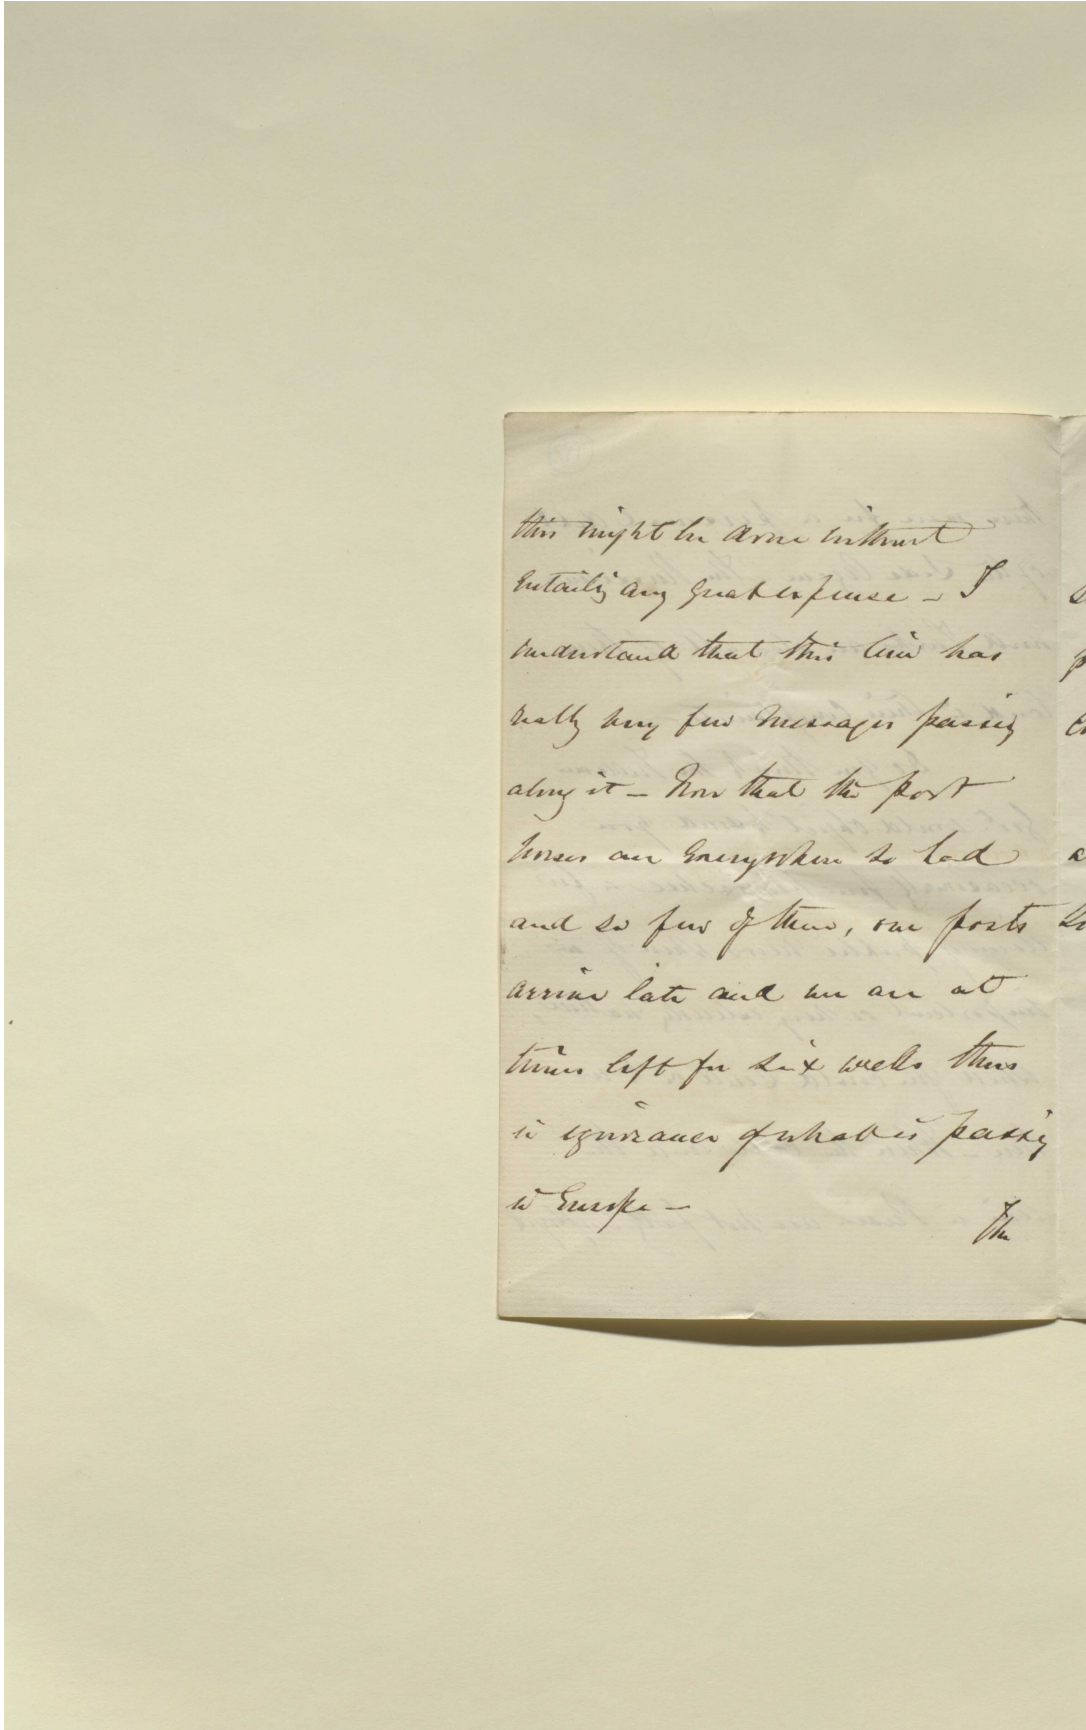 this might be done without
entailing any great expense — I
understand that this line has
really very few messages passing
along it — Now that the post
horses are everywhere so bad
and so few of them, our posts
arrive late and we are at
times left for six weeks thus
in ignorance of what is passing
in Europe —
The